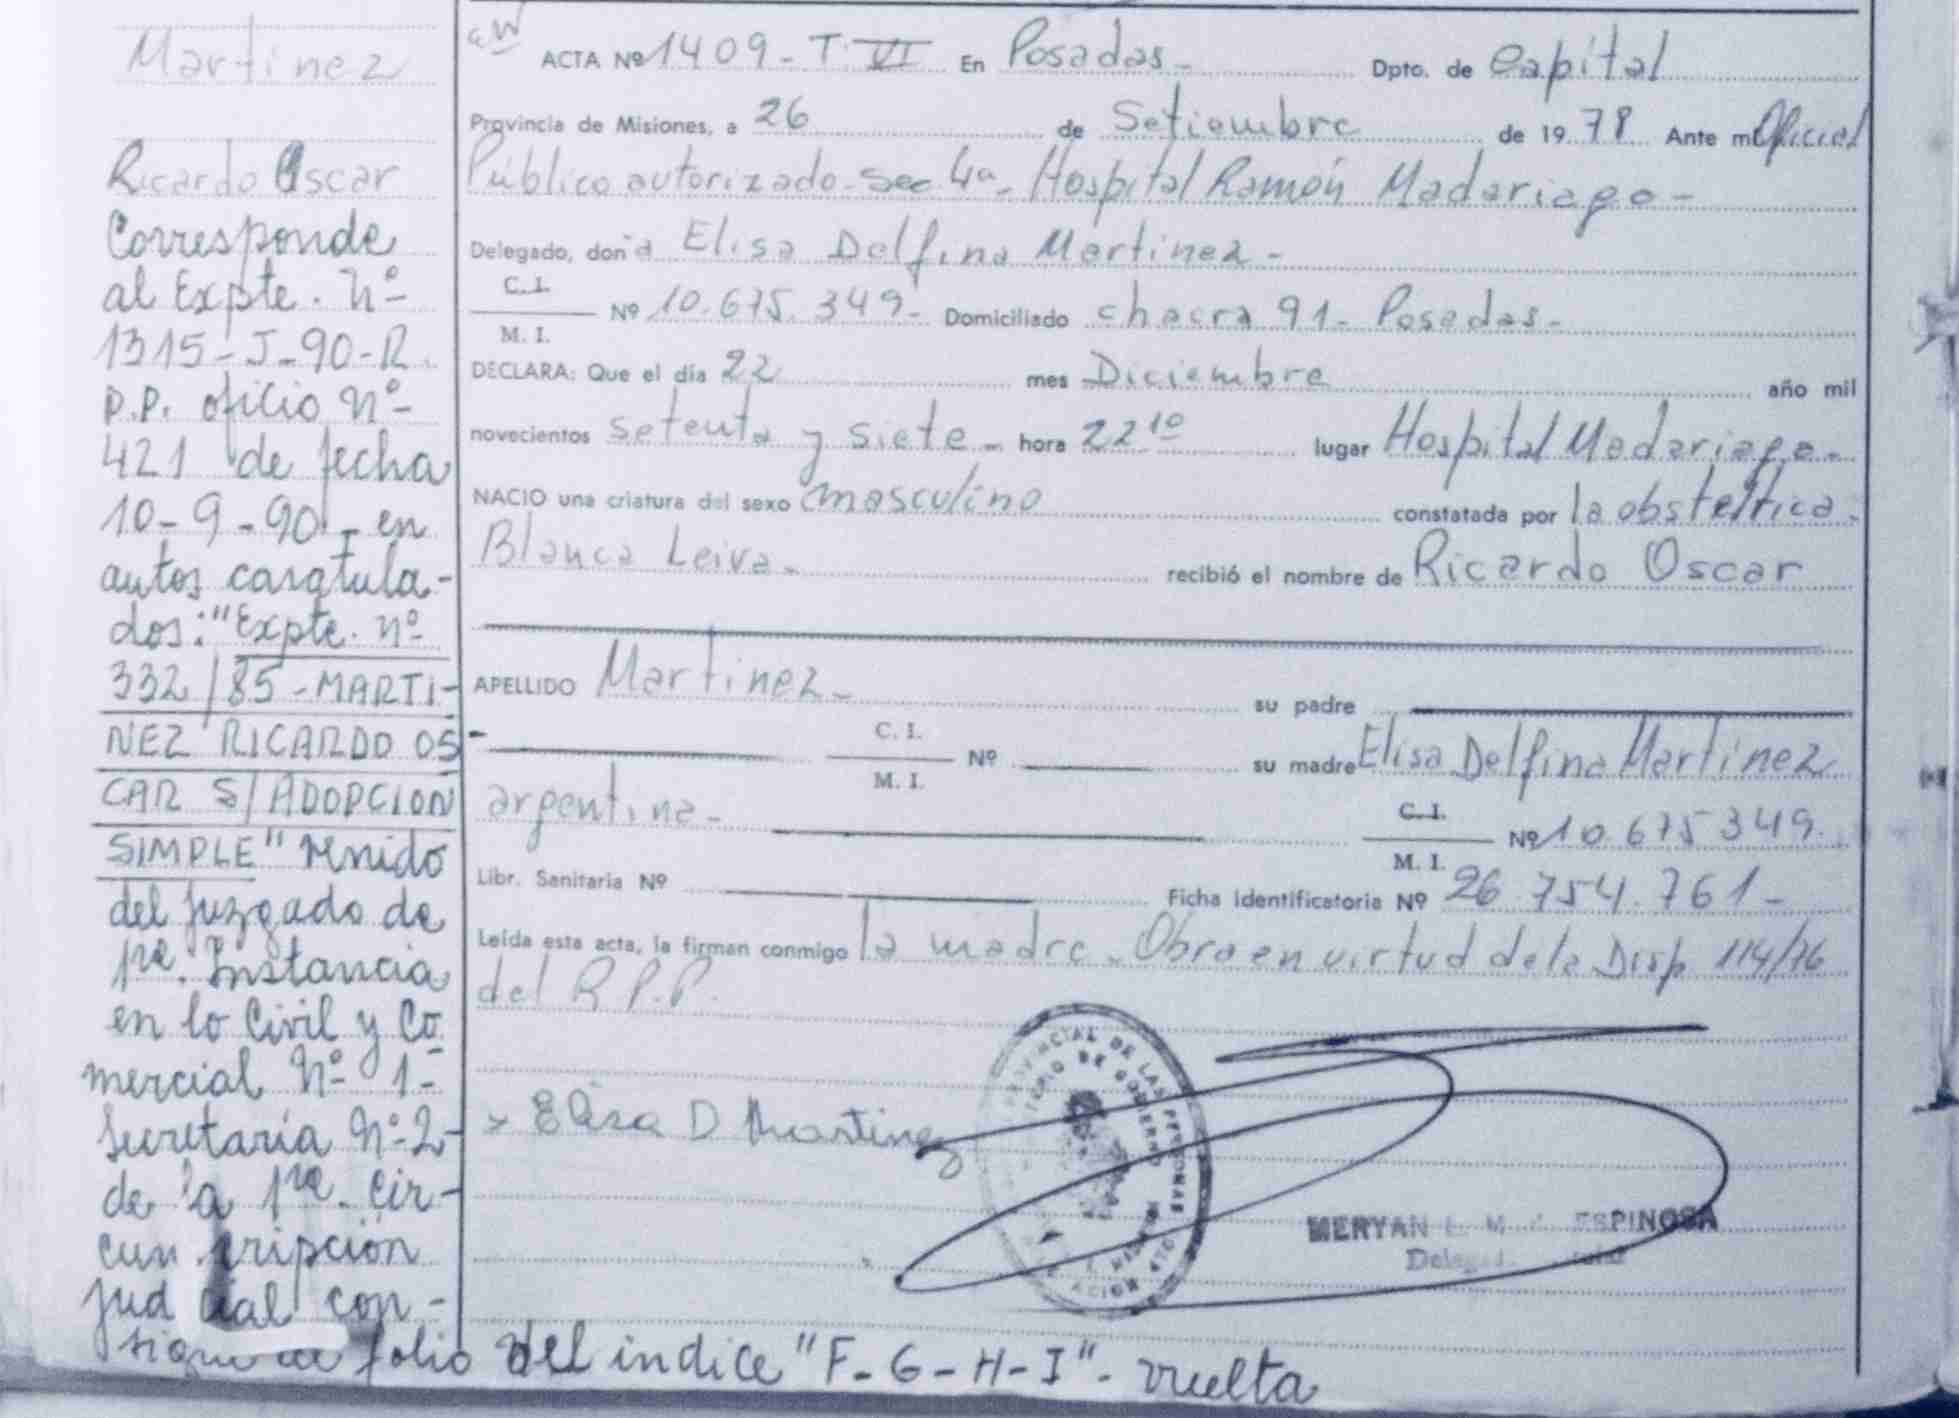 Martinez
Ricardo Oscar
Corresponde
al Expte. Nº
1315-J-90-R.
P.P. oficio Nº
421 de fecha
10-9-90 - en
autos caratula-
dos: "Expte. nº
332/85-MARTI-
NEZ RICARDO OS-
CAR S/ADOPCION
SIMPLE" venido
del Juzgado de
1ra. Instancia
en lo Civil y Co
mercial Nº 1-
Secretaría Nº 2-
de la 1ra. Cir-
cunscripción
judicial con-
sigue al folio del indice "F-G-H-I" - vuelta
ACTA Nº 1409 - T. VI En Posadas - Dpto. de Capital
Provincia de Misiones, a 26 de Setiembre de 19 78 Ante mi Oficial
Público autorizado - Sec. 4a - Hospital Ramón Madariaga -
Delegado, don a Elisa Delfina Martinez -
C. I.
M. I.
Nº 10.675.349 - Domiciliado chacra 91 - Posadas -
DECLARA: Que el día 22 mes Diciembre año mil
novecientos setenta y siete - hora 22 10 lugar Hospital Madariaga -
NACIO una criatura del sexo masculino constatada por la obstétrica
Blanca Leiva - recibió el nombre de Ricardo Oscar
APELLIDO Martinez - su padre
C. I.
M. I.
Nº su madre Elisa Delfina Martinez
argentina - C. I.
M. I.
Nº 10.675.349.
Libr. Sanitaria Nº Ficha Identificatoria Nº 26.754.761 -
Leída esta acta, la firman conmigo la madre - Obra en virtud de la Disp. 114/76
del R.P.P.
Elisa D Martinez
PROVINCIAL DE LAS PERSONAS
MINISTERIO DE GOBIERNO
MERYAN L. M. ESPINOSA